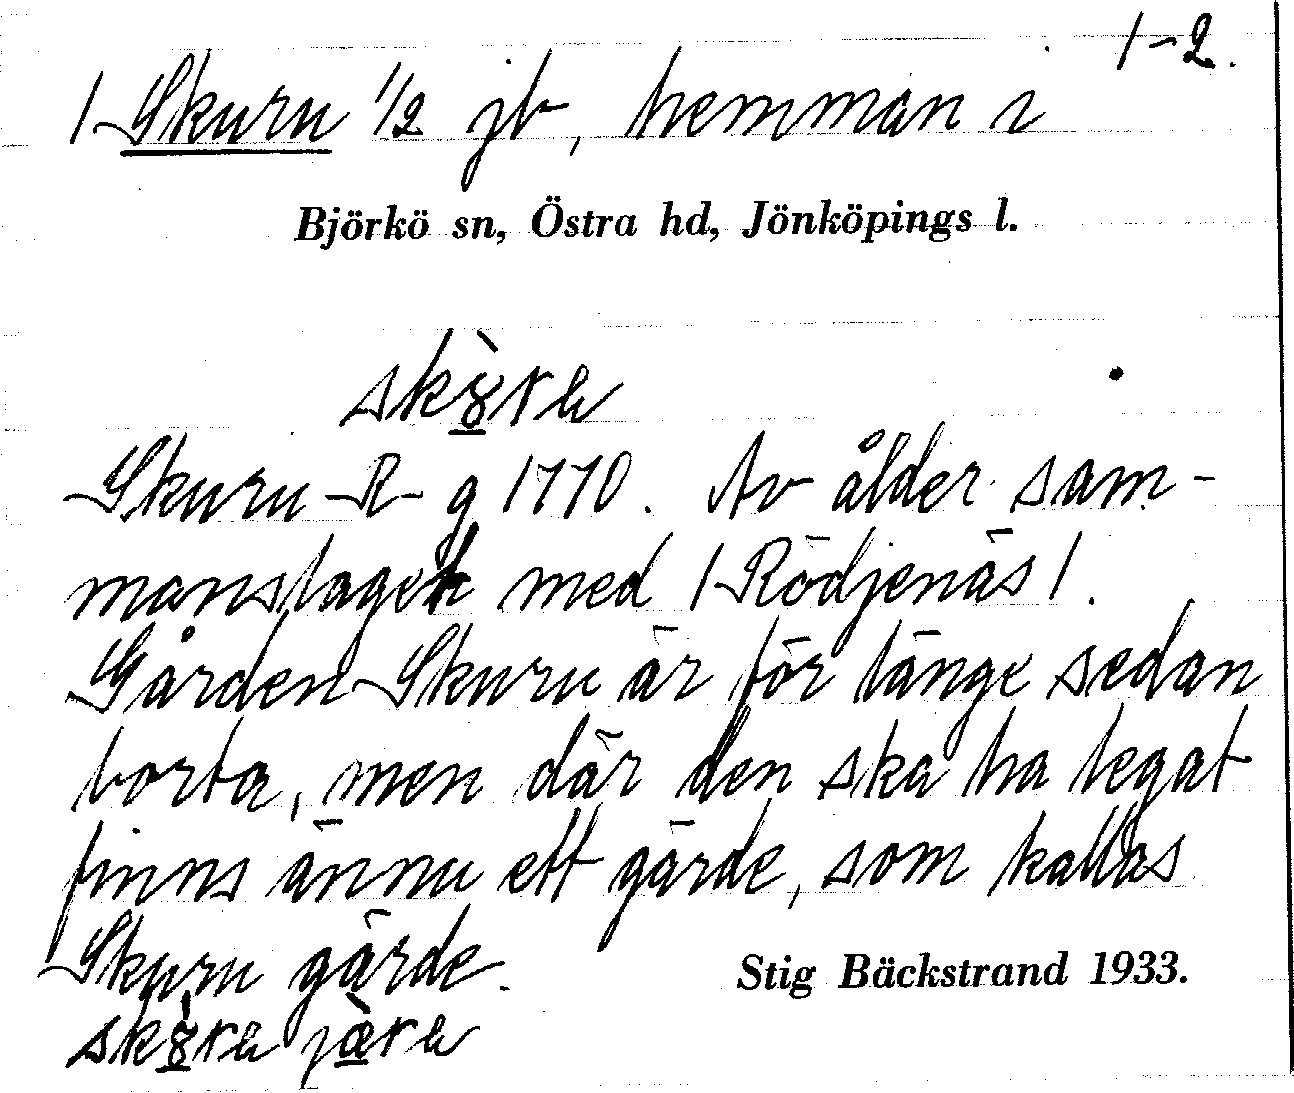 1-2.
/ Skuru 1/2 jb, hemman i
Björkö sn, Östra hd, Jönköpings l.
Skuru R g 1770. Av ålder sam-
manslaget med / Rödjenäs /.
Gården Skuru är för länge sedan
borta, men där den ska ha legat
finns ännu ett gärde, som kallas
Skuru gärde.
Stig Bäckstrand 1933.